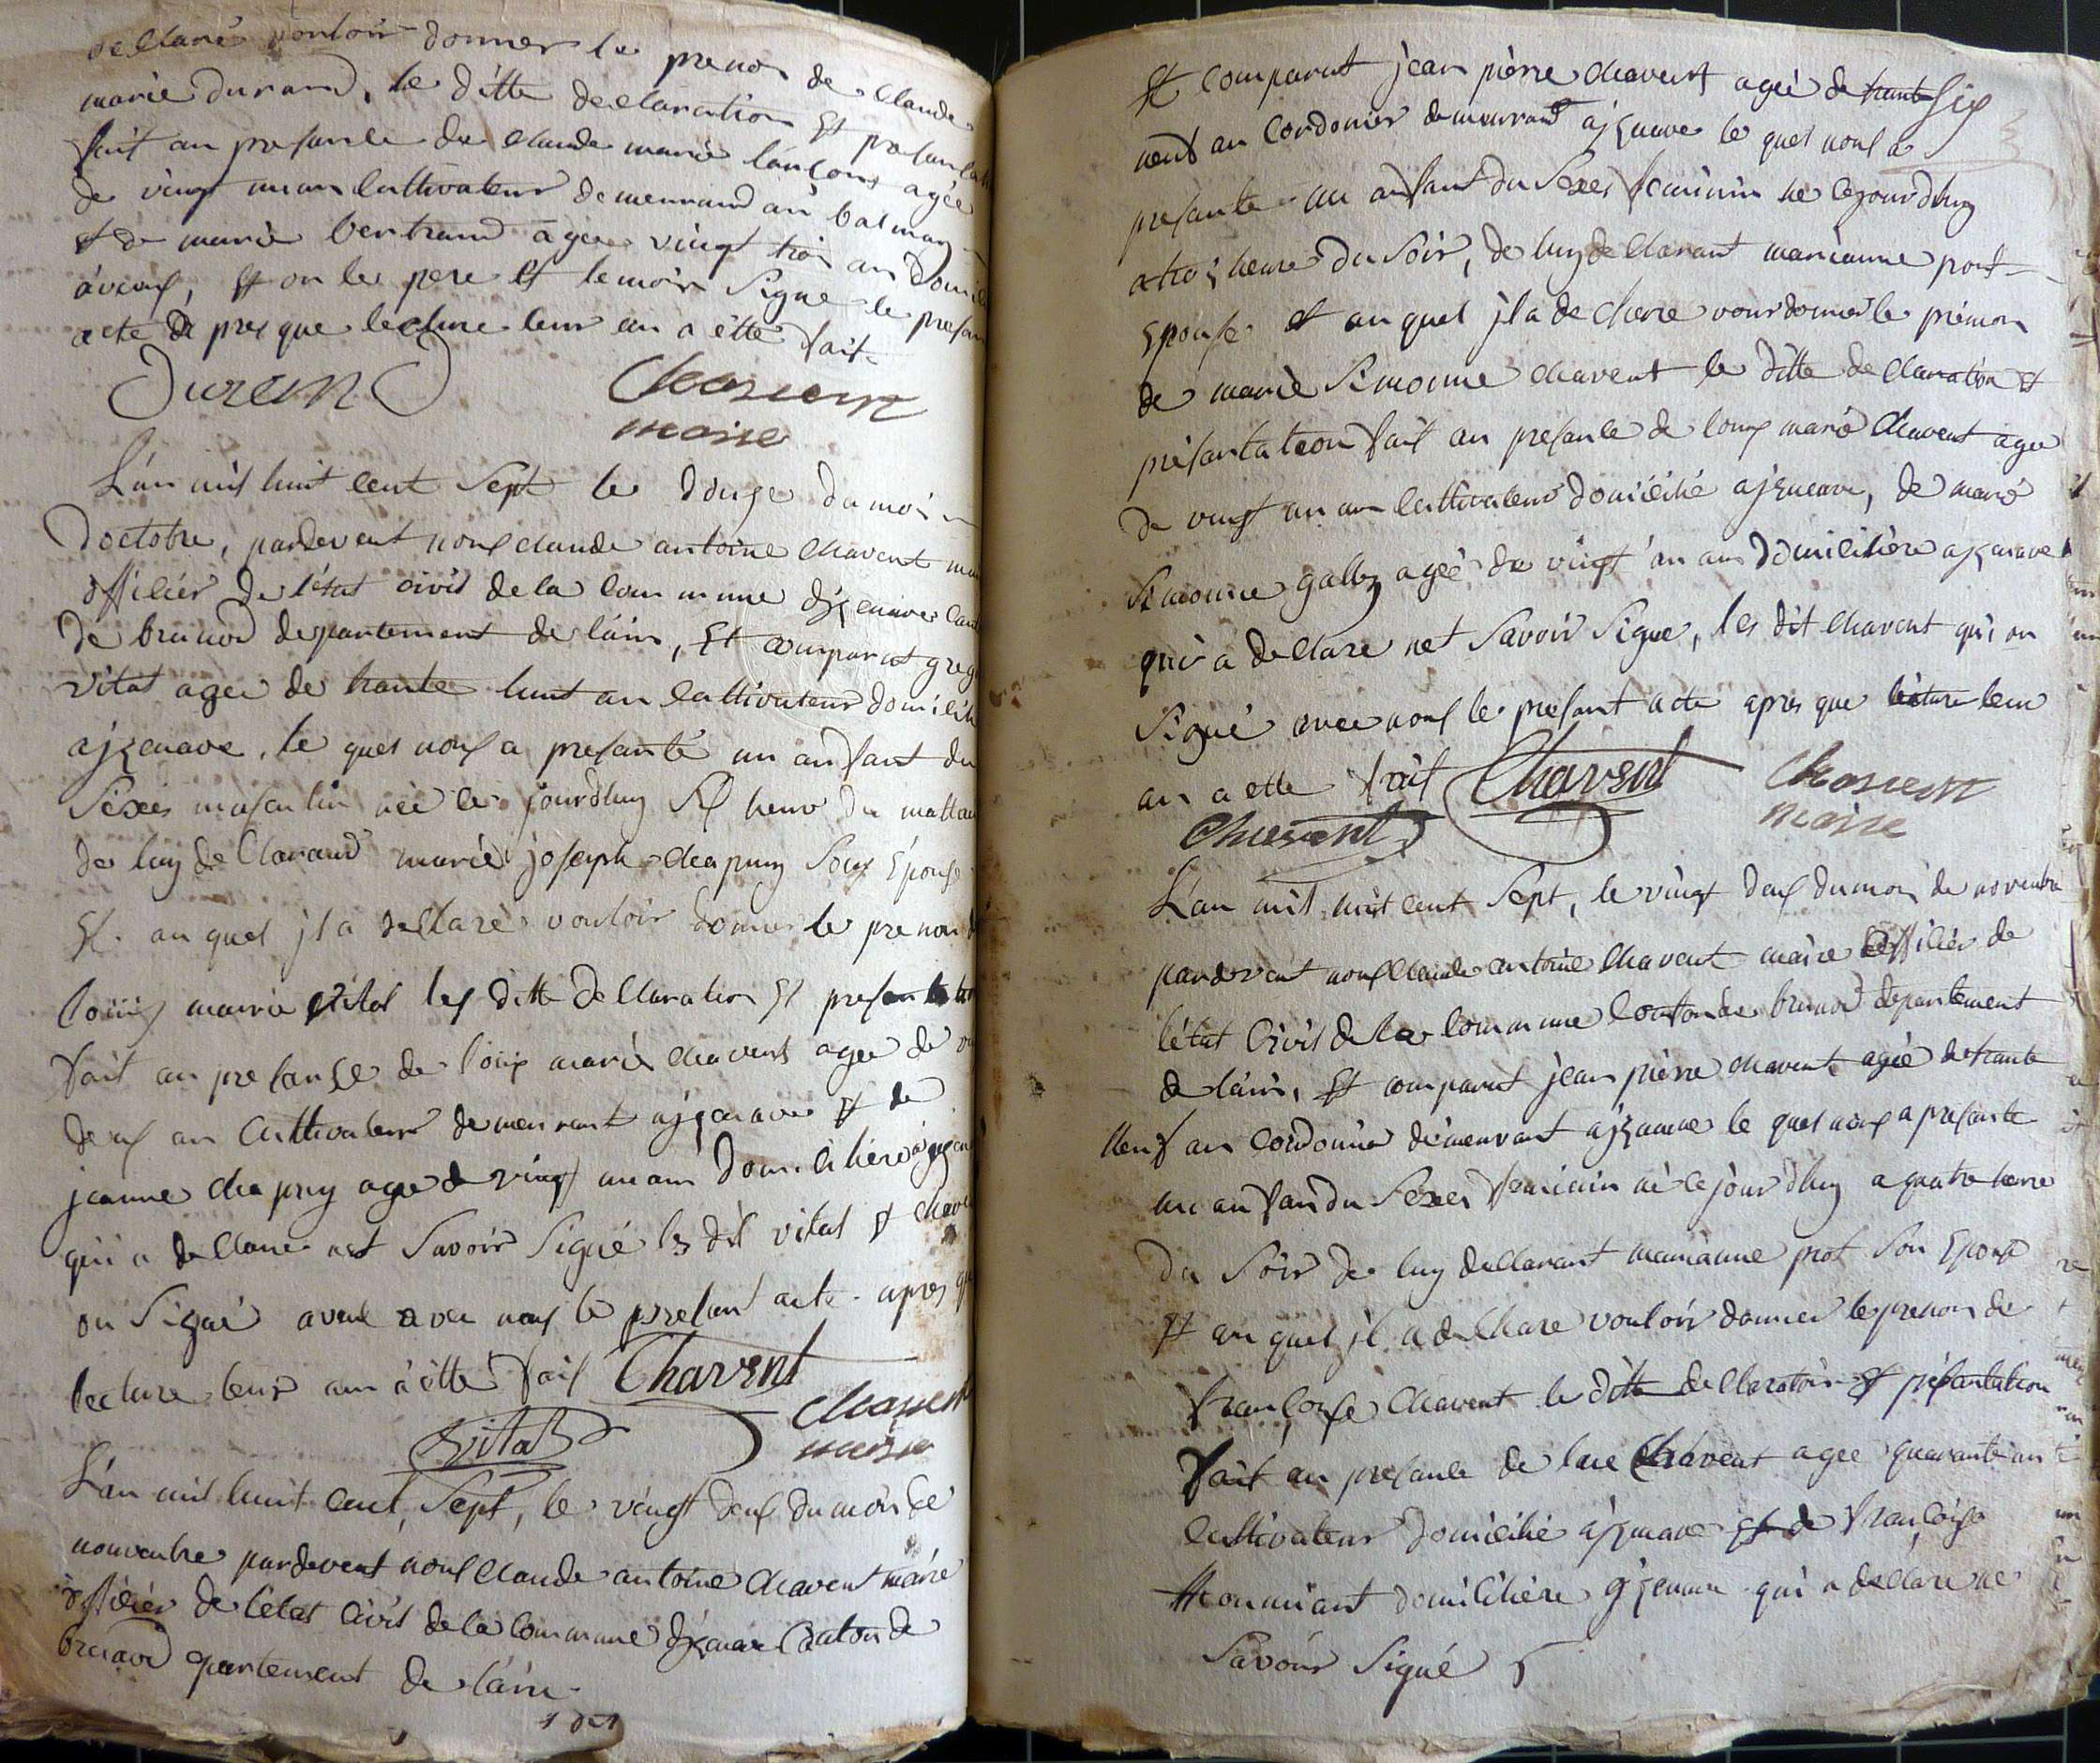 declaré vouloir donner le prenon de Claude
marie durand, le ditte declaration et presentation
fait an presance de claude marie lançons agée
de vingt un an cultivateur demeurand au balmay
et de marie bertrand agée vingt troi an
et on le pere et temoin signe le presan
acte da pres que lecture leur an a étté fait
Durand
Chavent
maire
L'an mil huit cent sept le douze du moi
doctobre, pardevent nous claude antoine chavent
officiér de l'état civil de la commune
de brenod departement de l'ain, et comparut greg
vital agee de trante huit an cultivateur domicili
ajzenave, le quel nous a presanté un anfant du
séxes masculin née le jourdhuy six heure du mattain
de luy de Clarand marie joseph chapuy sous épouse
et auquel jl a declaré vouloir donner le prenon d
Louis marie vital les ditte declaration et presentation
fait an presanse de louis marie chavent agee de
deux an Cultivateur demeurant ajzenave et de
jeanne chapuy agee de vingt un ans domiciliere
qui a declare net savoir signé les dit vital et chave
on signé avec nous le presant acte apres q
lecture leur an a étté fait Chavent
Vital
Chavent
maire
L'an mil huit cent, sept, le vingt deux du mois de
nouvenbre pardevent nous Claude antoine chavent maire
officiér de l'état civil de la commune djzenave Canton de
brenod partement de l'ain
et comparut jean piérre chavent ageé de trante six
neuf an Cordonier demeurand ajzenave le quel nous a
presante un anfant du sexes feminin né cejourdhuy
a troi heure du soir, de luy declarant marianne prost
epouse et auquel jl a de clare vour donner le prénon
de marie simonne chavent le ditte declaration et
présantation fait an presance de louis marie Chavent agee
de vingt un an cultivateur domicilié ajzenave, de marie
simonne agée de vingt un ans domicilière ajzenave
qui a declare net savoir signe, les dit chavent qui on
signé avec nous le presant acte apres que lecture leur
an a ette fait Chavent
Chavent
Chavent
maire
L'an mil huit cent sept, le vingt deux du moi de novenbre
pardevent nous Claude antoine Chavent maire officiér de
l'état Civil de la commune Conton de brenod departement
de l'ain, et comparut jean piérre chavent agée de trante
neuf an Cordonnier demeurant ajzenave le quel nous a presante
un anfan du sexes feminin né le jour d'huy a quatre heure
du soir de luy declarant marianne prot son epouse
et auquel jl a declare vouloir donner le prenon de
françoise chavent le ditte declaration et présantation
fait an presance de luc Chavent agee quarante an
cultivateur domicilié ajzenave et de françoise
domicilière qui a declare ne
savoir signé